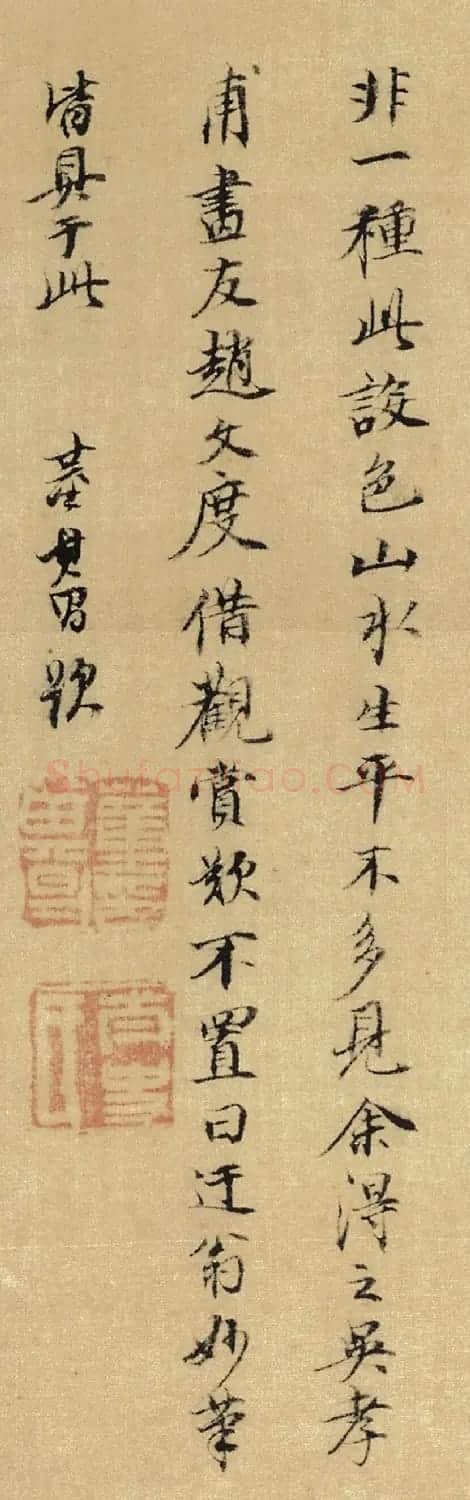 非一種此設色山水生平不多見余得之吳孝
甫畫友趙文度借觀賞歎不置曰迂翁妙筆
皆具于此 董其昌題